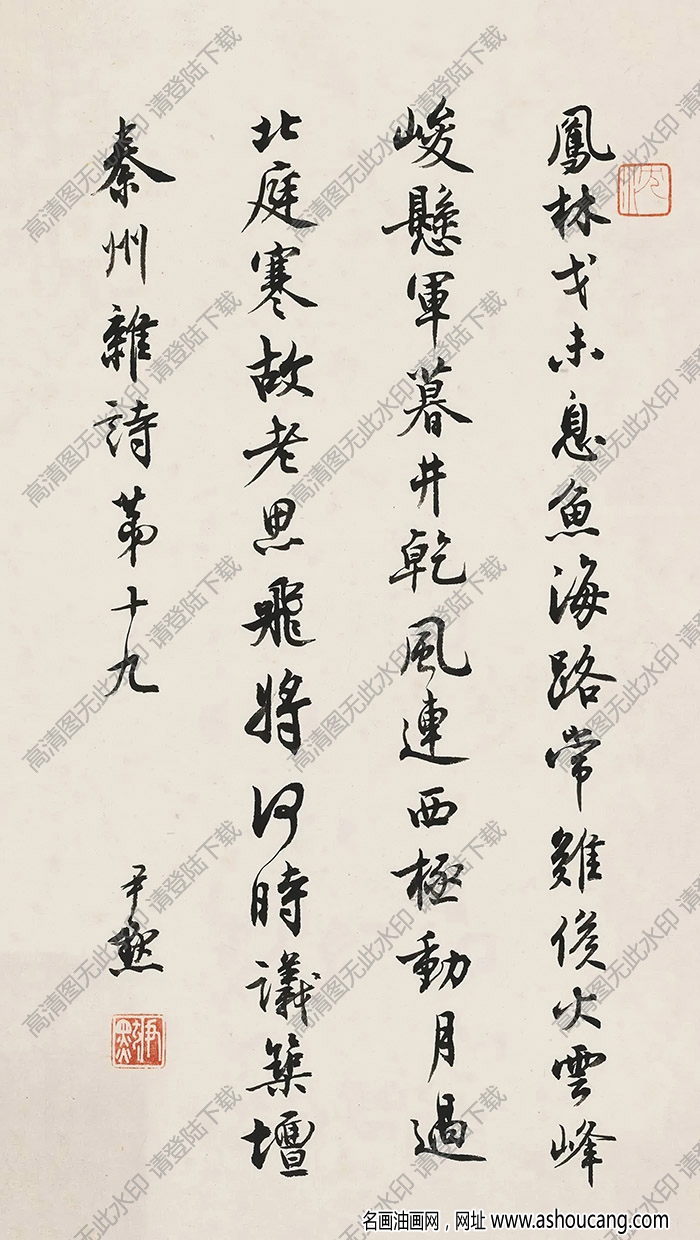 鳳林戈未息魚海路常難候火雲峰
峻懸軍暮井乾風連西極動月過
北庭寒故老思飛將何時議築壇
秦州雜詩第十九
尹默
沈
高清图无此水印 请登陆下载
名画油画网，网址 www.ashoucang.com